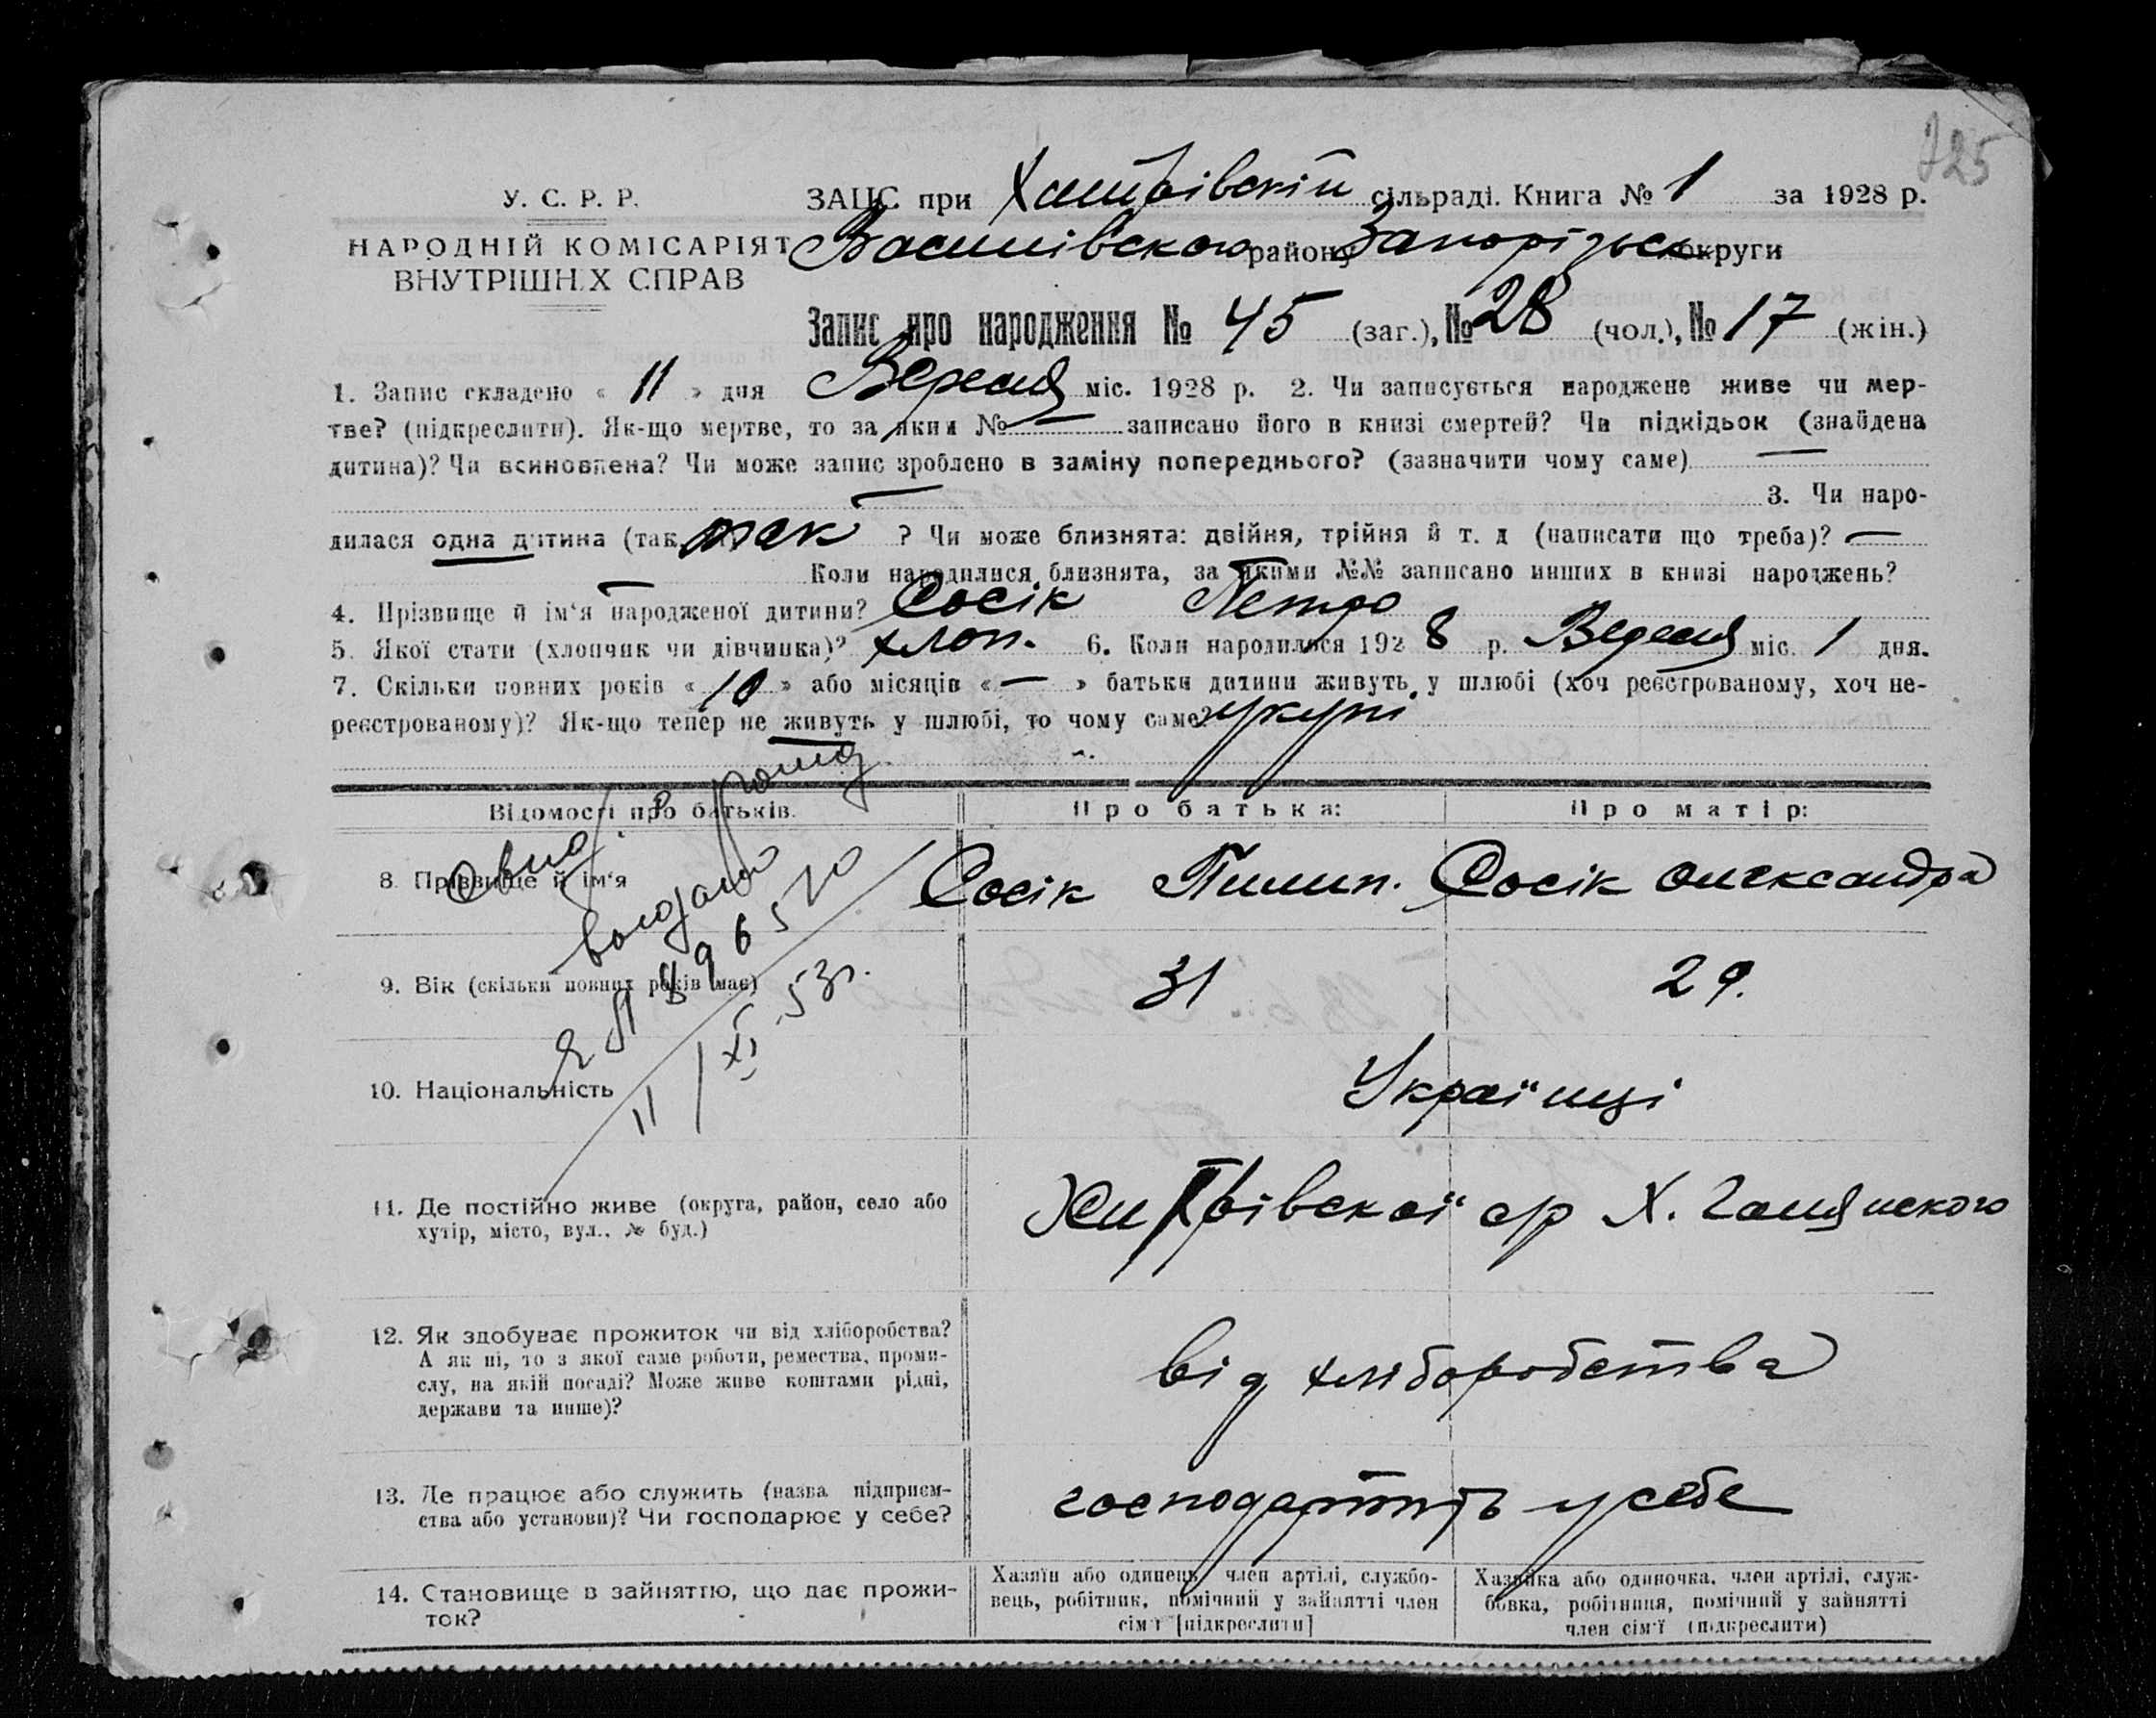 725
У. С. Р. Р.
НАРОДНІЙ КОМІСАРІЯТ
ВНУТРІШН.Х СПРАВ
ЗАЦС при сільраді. Книга № 1 за 1928 р.
Василівского району Запорізьк округи
Запис про народження № 45 (заг.), № 28 (чол.), № 17 (жін.)
1. Запис складено « 11 » дня Вересня міс. 1928 р. 2. Чи записується народжене живе чи мер-
тве? (підкреслити). Як-що мертве, то за яким № — записано його в книзі смертей? Чи підкідьок (знайдена
дитина)? Чи всиновлена? Чи може запис зроблено в заміну попереднього? (зазначити чому саме) —
— 3. Чи наро-
дилася одна дитина (так, так ? Чи може близнята: двійня, трійня й т. д (написати що треба)? —
— Коли народилися близнята, за якими №№ записано инших в книзі народжень?
4. Прізвище й ім‘я народженої дитини? Сосік Петро
5. Якої стати (хлопчик чи дівчинка)? хлоп. 6. Коли народилося 1928 р. Вересня міс. 1 дня.
7. Скільки повних років « 10 » або місяців « — » батьки дитини живуть у шлюбі (хоч реєстрованому, хоч не-
реєстрованому)? Як-що тепер не живуть у шлюбі, то чому саме? укупі
Відомості про батьків. Про батька: Про матір:
8. Прізвище й ім‘я Сосік Пилип. Сосік Олександра
9. Вік (скільки повних років має) 31 29.
10. Національність Українці
11. Де постійно живе (округа, район, село або
хутір, місто, вул., № буд.)
с/р Х.
12. Як здобуває прожиток чи від хліборобства?
А як ні, то з якої саме роботи, ремества, проми-
слу, на якій посаді? Може живе коштами рідні,
держави та инше)?
від хліборобства
13. Де працює або служить (назва підприєм-
ства або установи)? Чи господарює у себе?
у себе
14. Становище в зайняттю, що дає прожи-
ток?
Хазяїн або одинець, член артілі, службо-
вець, робітник, помічний у зайнятті член
сім‘ї [підкреслити]
Хазяйка або одиночка, член артілі, служ-
бовка, робітниця, помічний у зайнятті
член сім‘ї (підкреслити)
11/XI-53г.